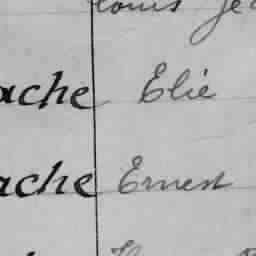 Louis Je
ache Elie
ache Ernest